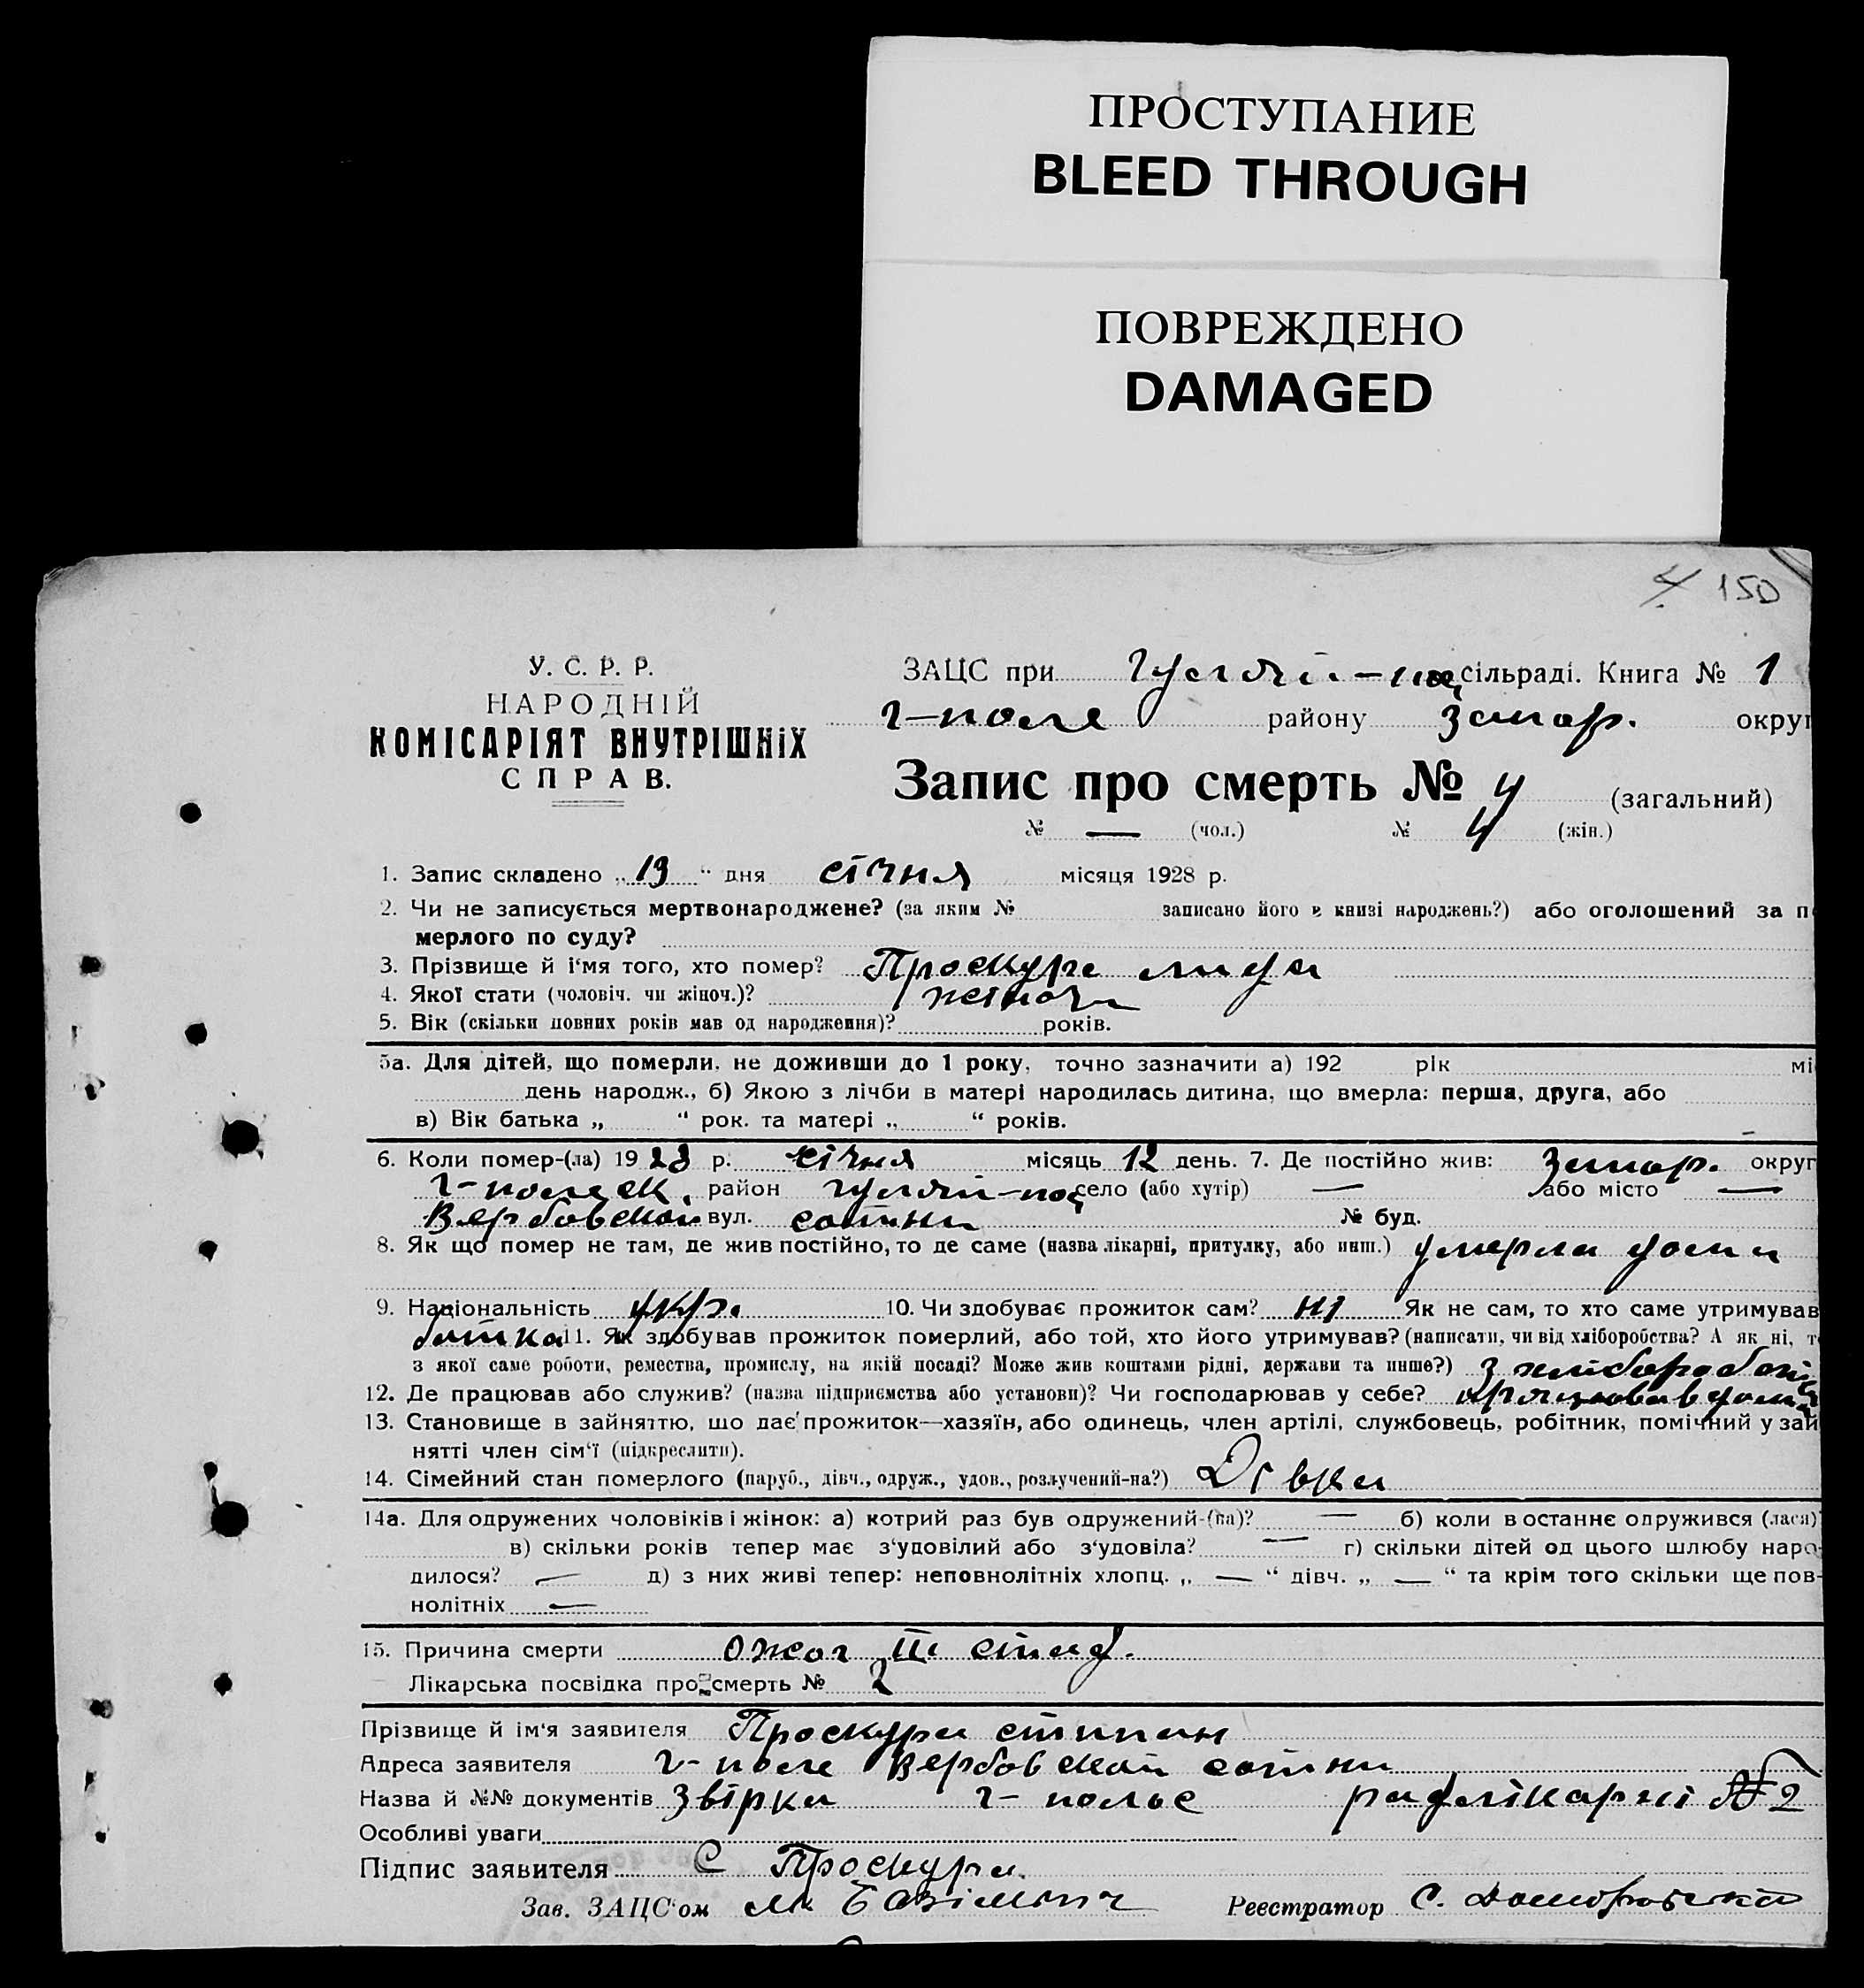 ПРОСТУПАНИЕ
BLEED THROUGH
ПОВРЕЖДЕНО
DAMAGED
4 150
У. С. Р. Р.
НАРОДНІЙ
КОМІСАРІЯТ ВНУТРІШНіХ
СПРАВ.
ЗАЦС при Гуляй-по сільраді. Книга № 1
Г-поле району Запор. округ
Запис про смерть № 4 (загальний)
№ — (чол.) № 4 (жін.)
1. Запис складено „ 13 “ дня січня місяця 1928 р.
2. Чи не записується мертвонароджене? (за яким № записано його в книзі народжень?) або оголошений за п
мерлого по суду?
3. Прізвище й і‘мя того, хто помер? Проскура
4. Якої стати (чоловіч. чи жіноч.)? жіноча
5. Вік (скільки повних років мав од народження)? років.
5а. Для дітей, що померли, не доживши до 1 року, точно зазначити а) 192 рік мі
день народж., б) Якою з лічби в матері народилась дитина, що вмерла: перша, друга, або
в) Вік батька „ “ рок. та матері „ “ років.
6. Коли помер-(ла) 19 28 р. січня місяць 12 день. 7. Де постійно жив: Запор. округ
Г-полеск. район Гуляй-по село (або хутір) — або місто —
Вербовской вул. сотни № буд.
8. Як що помер не там, де жив постійно, то де саме (назва лікарні, притулку, або инш.) умерла дома
9. Національність укр. 10. Чи здобуває прожиток сам? ні Як не сам, то хто саме утримував
батька 11. Як здобував прожиток померлий, або той, хто його утримував? (написати, чи від хліборобства? А як ні, т
з якої саме роботи, ремества, промислу, на якій посаді? Може жив коштами рідні, держави та инше?) з
12. Де працював або служив? (назва підприємства або установи)? Чи господарював у себе? працював дома
13. Становище в зайняттю, що дає прожиток—хазяїн, або одинець, член артілі, службовець, робітник, помічний у зай
нятті член сім‘ї (підкреслити).
14. Сімейний стан померлого (паруб., дівч., одруж., удов., розлучений-на?) Дівка
14а. Для одружених чоловіків і жінок: а) котрий раз був одружений-(на)? — б) коли в останнє одружився (лася)
в) скільки років тепер має з‘удовілий або з‘удовіла? — г) скільки дітей од цього шлюбу наро-
дилося? — д) з них живі тепер: неповнолітніх хлопц. „ — “ дівч. „ — “ та крім того скільки ще пов-
нолітніх —
15. Причина смерти ожог III
Лікарська посвідка про смерть № 2
Прізвище й ім‘я заявителя Проскура степан
Адреса заявителя г-поле Вербовской сотни
Назва й №№ документів Звірка г-польс райлікарні № 2
Особливі уваги
Підпис заявителя С Проскура
Зав. ЗАЦС‘ом
Реєстратор С.